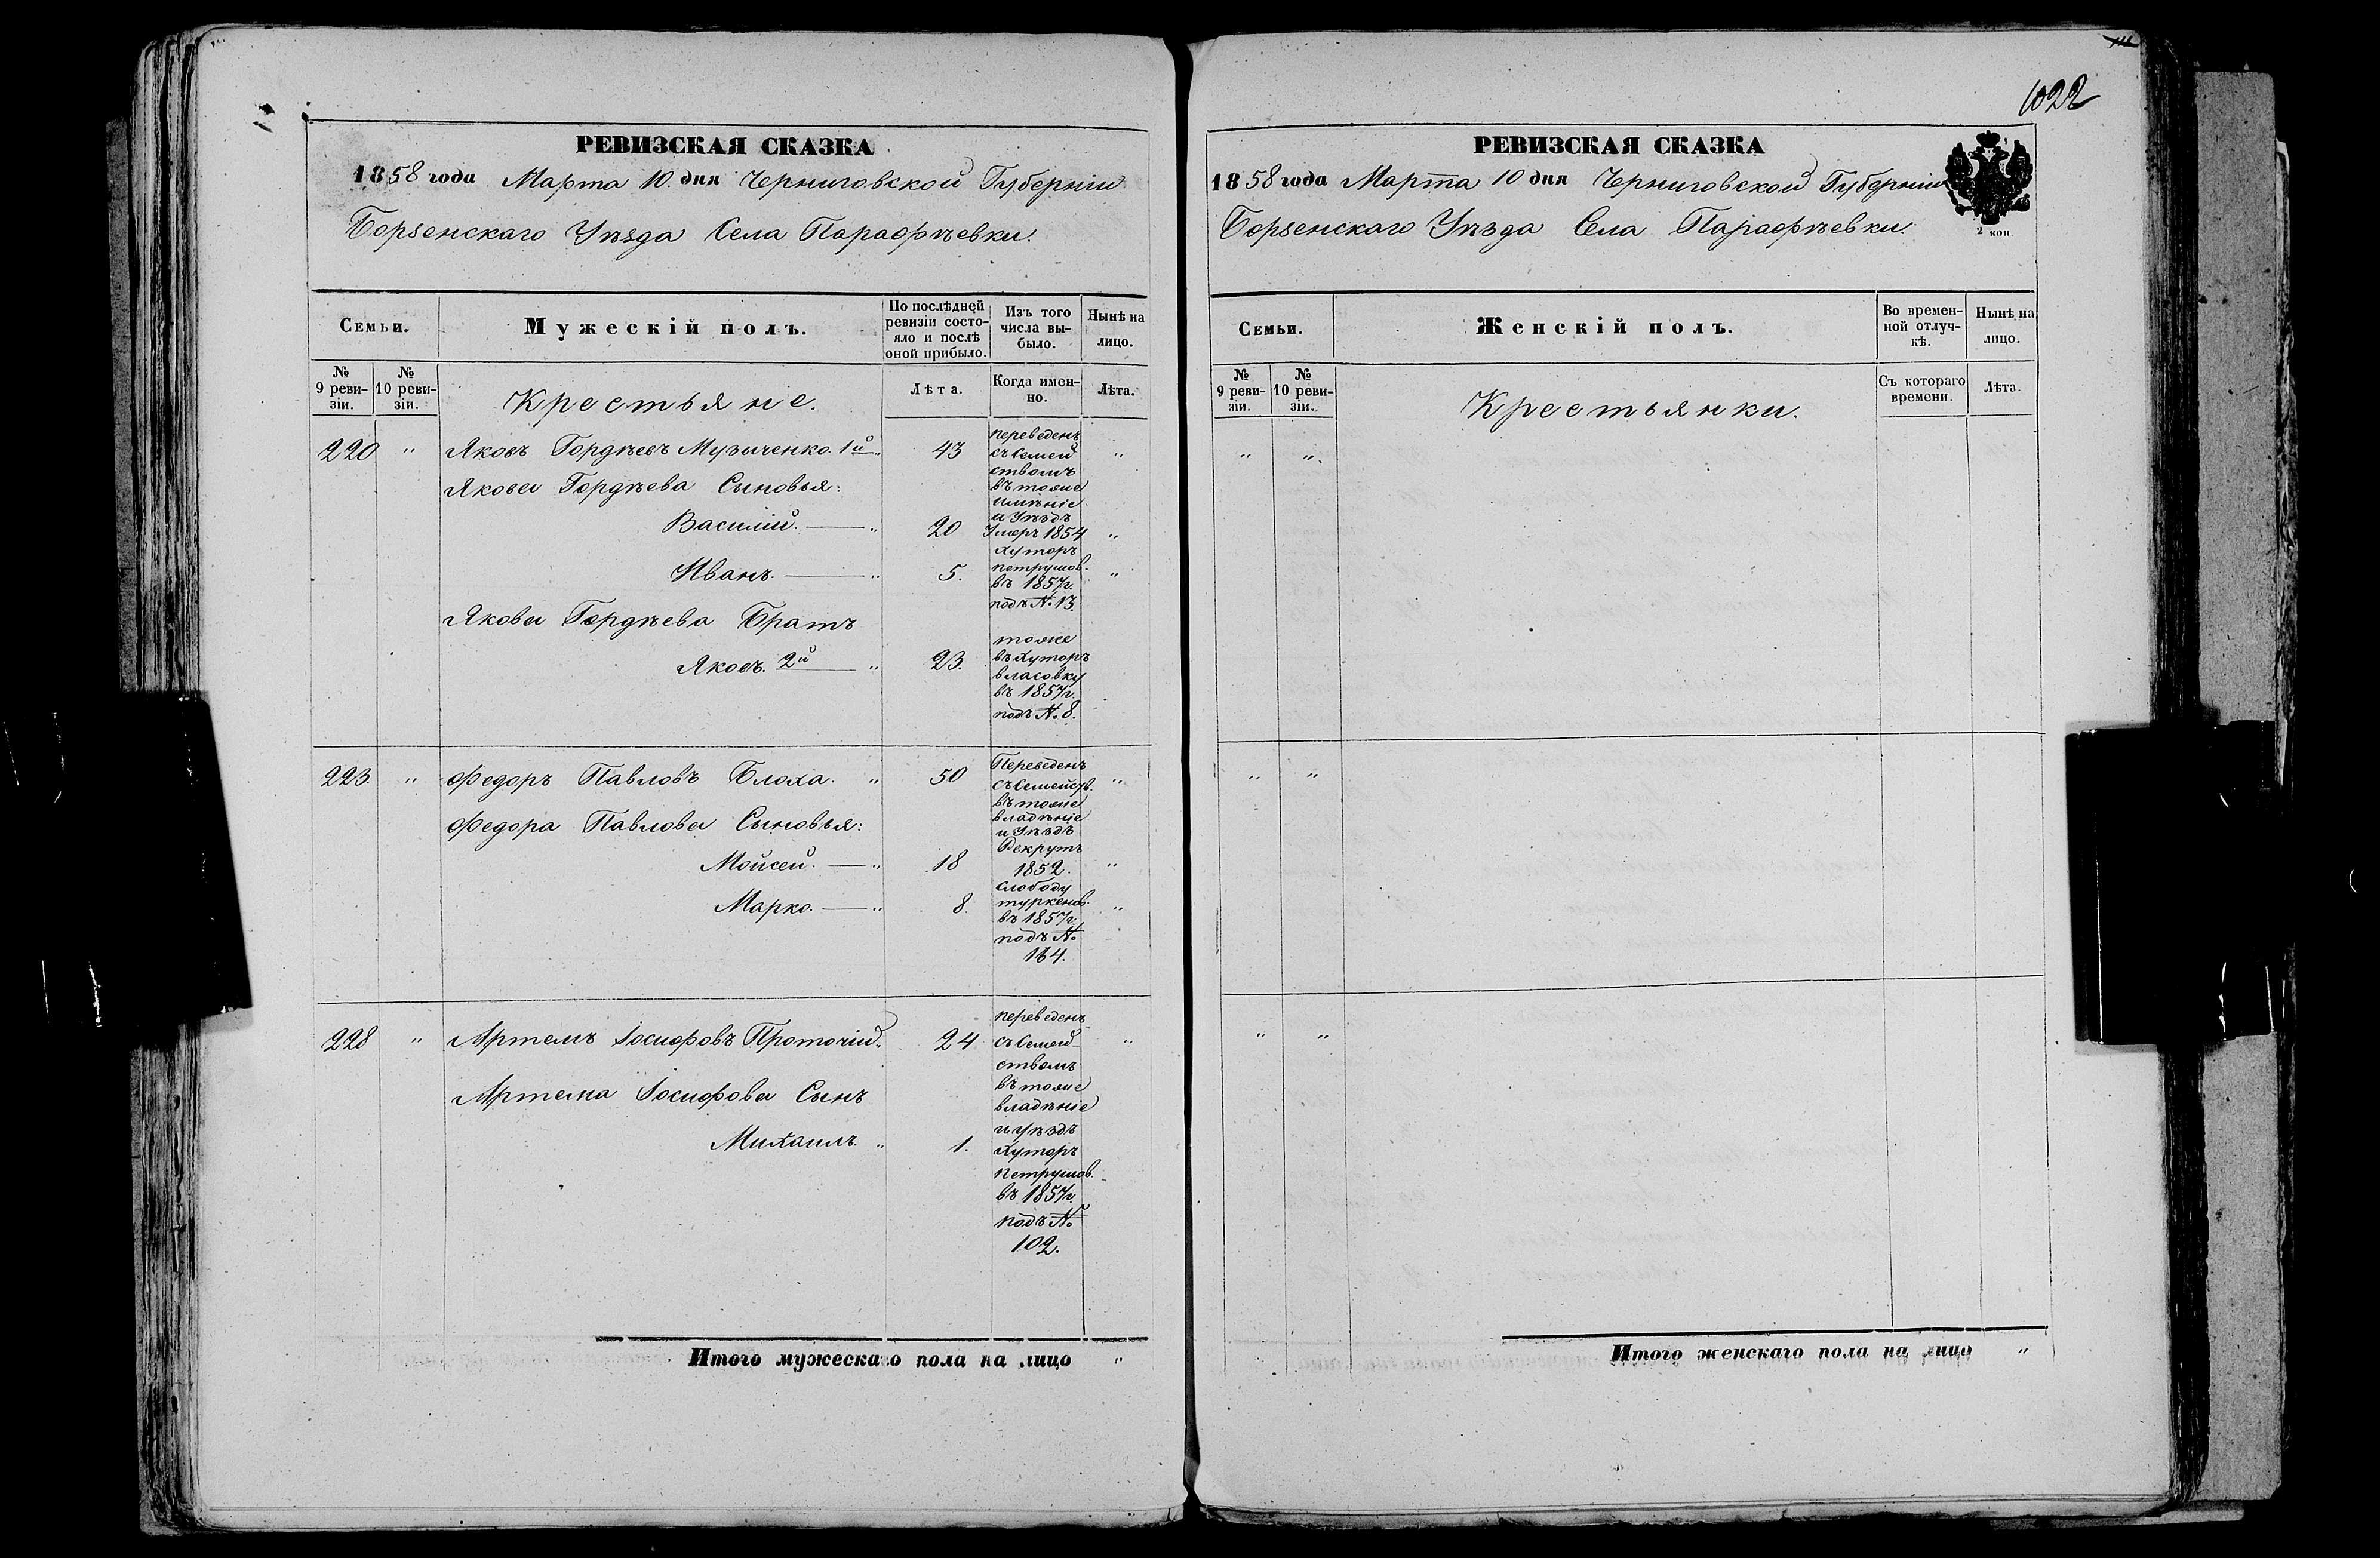 РЕВИЗСКАЯ СКАЗКА
1858 года Марта 10. дня Черниговской Губерніи
Борзенскаго Уѣзда Села Парафѣевки.
Семьи.
Мужескій полъ.
По послѣдней ревизіи состо-
яло и послѣ
оной прибыло.
Изъ того
числа вы-
было.
Нынѣ на
лицо.
№
9 реви-
зіи.
№
10 реви-
зіи.
Крестьяне.
Лѣта.
Когда имен-
но.
Лѣта.
220 " Яковъ Гордѣевъ Музыченко 1й " 43
переведенъ
съ Семей
ствомъ
въ тоже
имѣніе
и Уѣздъ
Якова Гордѣева Сыновья:
Василій. — " 20 Умеръ 1854 "
Иванъ. — " 5. "
хуторъ
петрушов.
въ 1857г.
подъ № 13.
Якова Гордѣева Братъ
Яковъ. 2й — " 23.
тоже
въ Хуторъ
власовку
въ 1857г.
подъ № 8.
223. " Федоръ Павловъ Блоха. " 50 "
Переведенъ
съ Семейств.
въ тоже
владѣніе
и Уѣздъ
Федора Павлова Сыновья:
Мойсей. — " 18 Рекрутъ
1852. "
Марко. — " 8. "
слободу
туркенов.
въ 1857г.
подъ №
164.
228 " Артемъ Іосифовъ Проточій. 24 "
переведенъ
съ Семей
ствомъ
въ тоже
владѣніе
и уѣздъ
Хуторъ
петрушов.
въ 1857г.
подъ №
102.
Артема Іосифова Сынъ
Михаилъ. " 1.
Итого мужескаго пола на лицо "
1022
РЕВИЗСКАЯ СКАЗКА
1858 года Марта 10 дня Черниговской Губерніи
Борзенскаго Уѣзда Села Парафѣевки.
2 коп
Семьи.
Женскій полъ.
Во времен-
ной отлуч-
кѣ.
Нынѣ на
лицо.
№
9 реви-
зіи.
№
10 реви-
зіи.
Крестьянки.
Съ котораго
времени.
Лѣта.
" "
" "
" "
Итого женскаго пола на лицо "